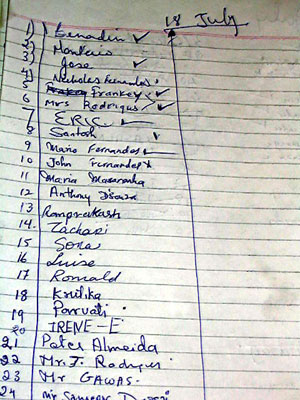 18 July
1) Benadin ✓
2) Monterio
3) Jose ✓
4) Nicholas Fernandes
5 Frankey ✓
6 Mrs Rodrigues ✓
7 ERIC ✓
8 Santosh ✓
9 Mario Fernandes ✓
10 John Fernandes
11 Maria Mascarenha
12 Anthony D'souza
13 Ramprakash
14. Zachari
15 Sona
16 Luise
17 Romald
18 Krutika
19 Parvati
20 IRENE-E
21 Pater Almeida
22 Mr. J. Rodrigues
23 Mr GAWAS.
24 Mr Sameer